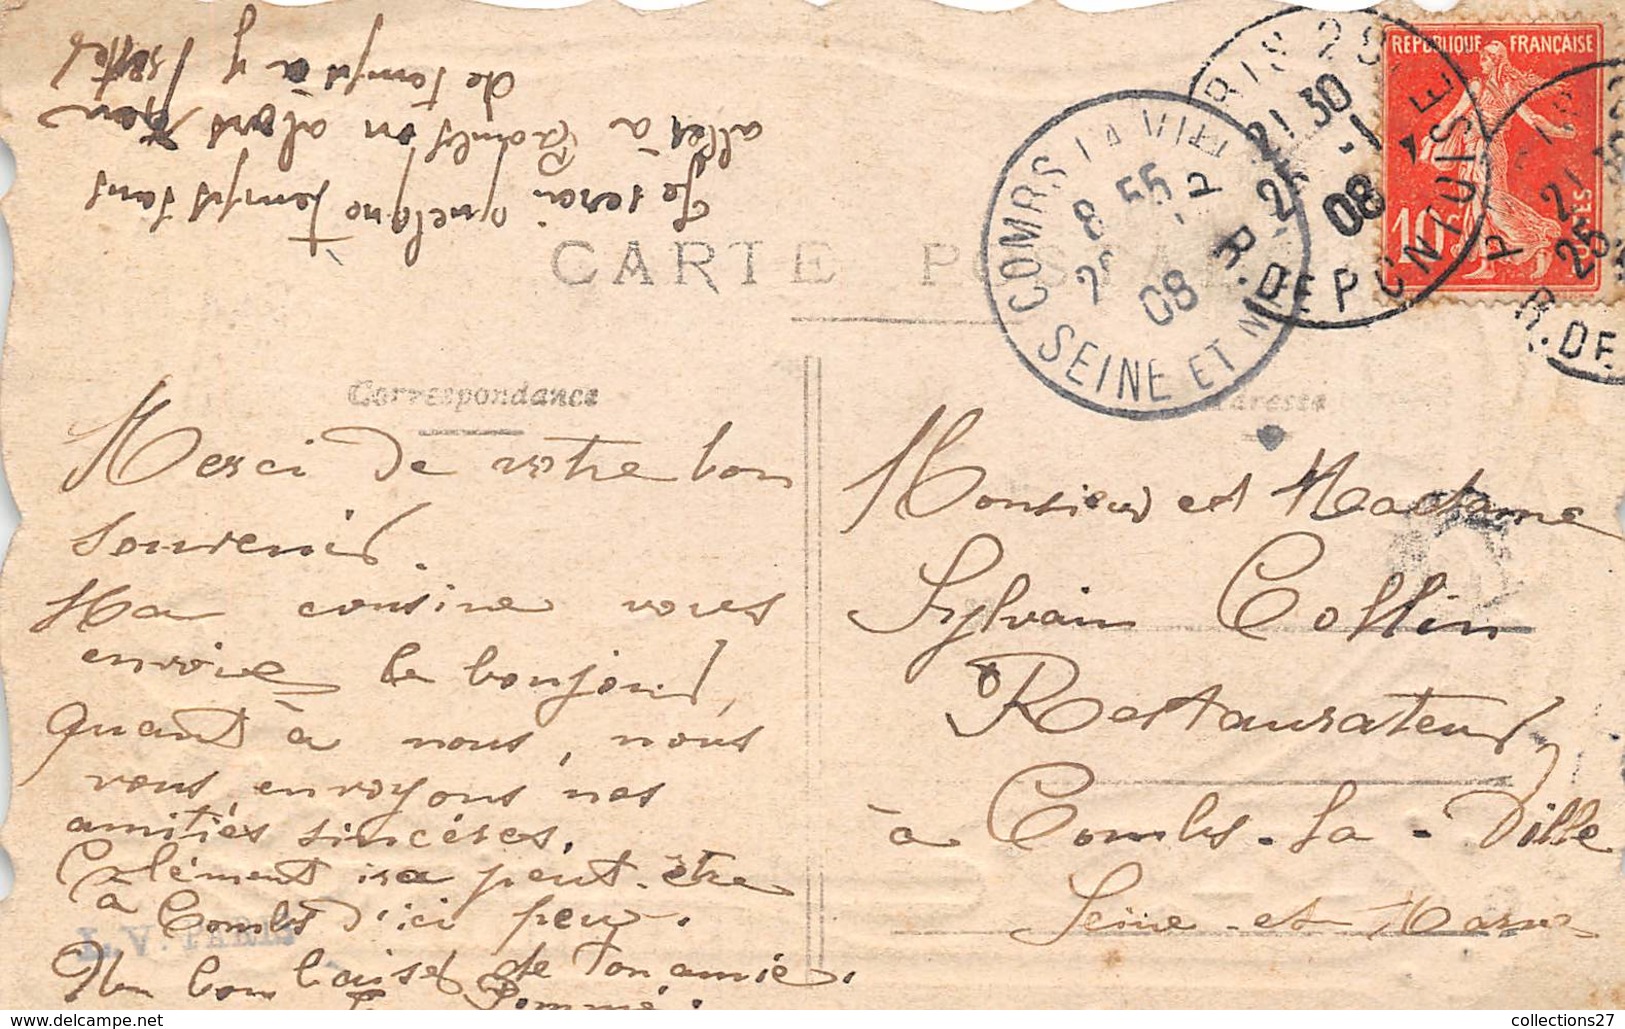 Je serai quelque temps sans
aller à Combs on alors
de temps à y
CARTE POSTALE
REPUBLIQUE FRANÇAISE
10c POSTES
PARIS 26
21 30
25 -1
08
R. DE PONTOISE
COMBS LA VILLE
8 55
08
SEINE ET M
21
25
R. DE
Correspondance
Adresse
Merci de votre bon
souvenir.
Ma cousine vous
envoie le bonjour,
quant à nous, nous
vous envoyons nos
amitiés sincères.
Clément ira peut-être
à Combs d'ici peu.
Un bon baiser de ton amie.
L.V. PARIS
Monsieur et Madame
Sylvain Collin
Restaurateur,
à Combs-la-Ville
Seine-et-Marne
collections27